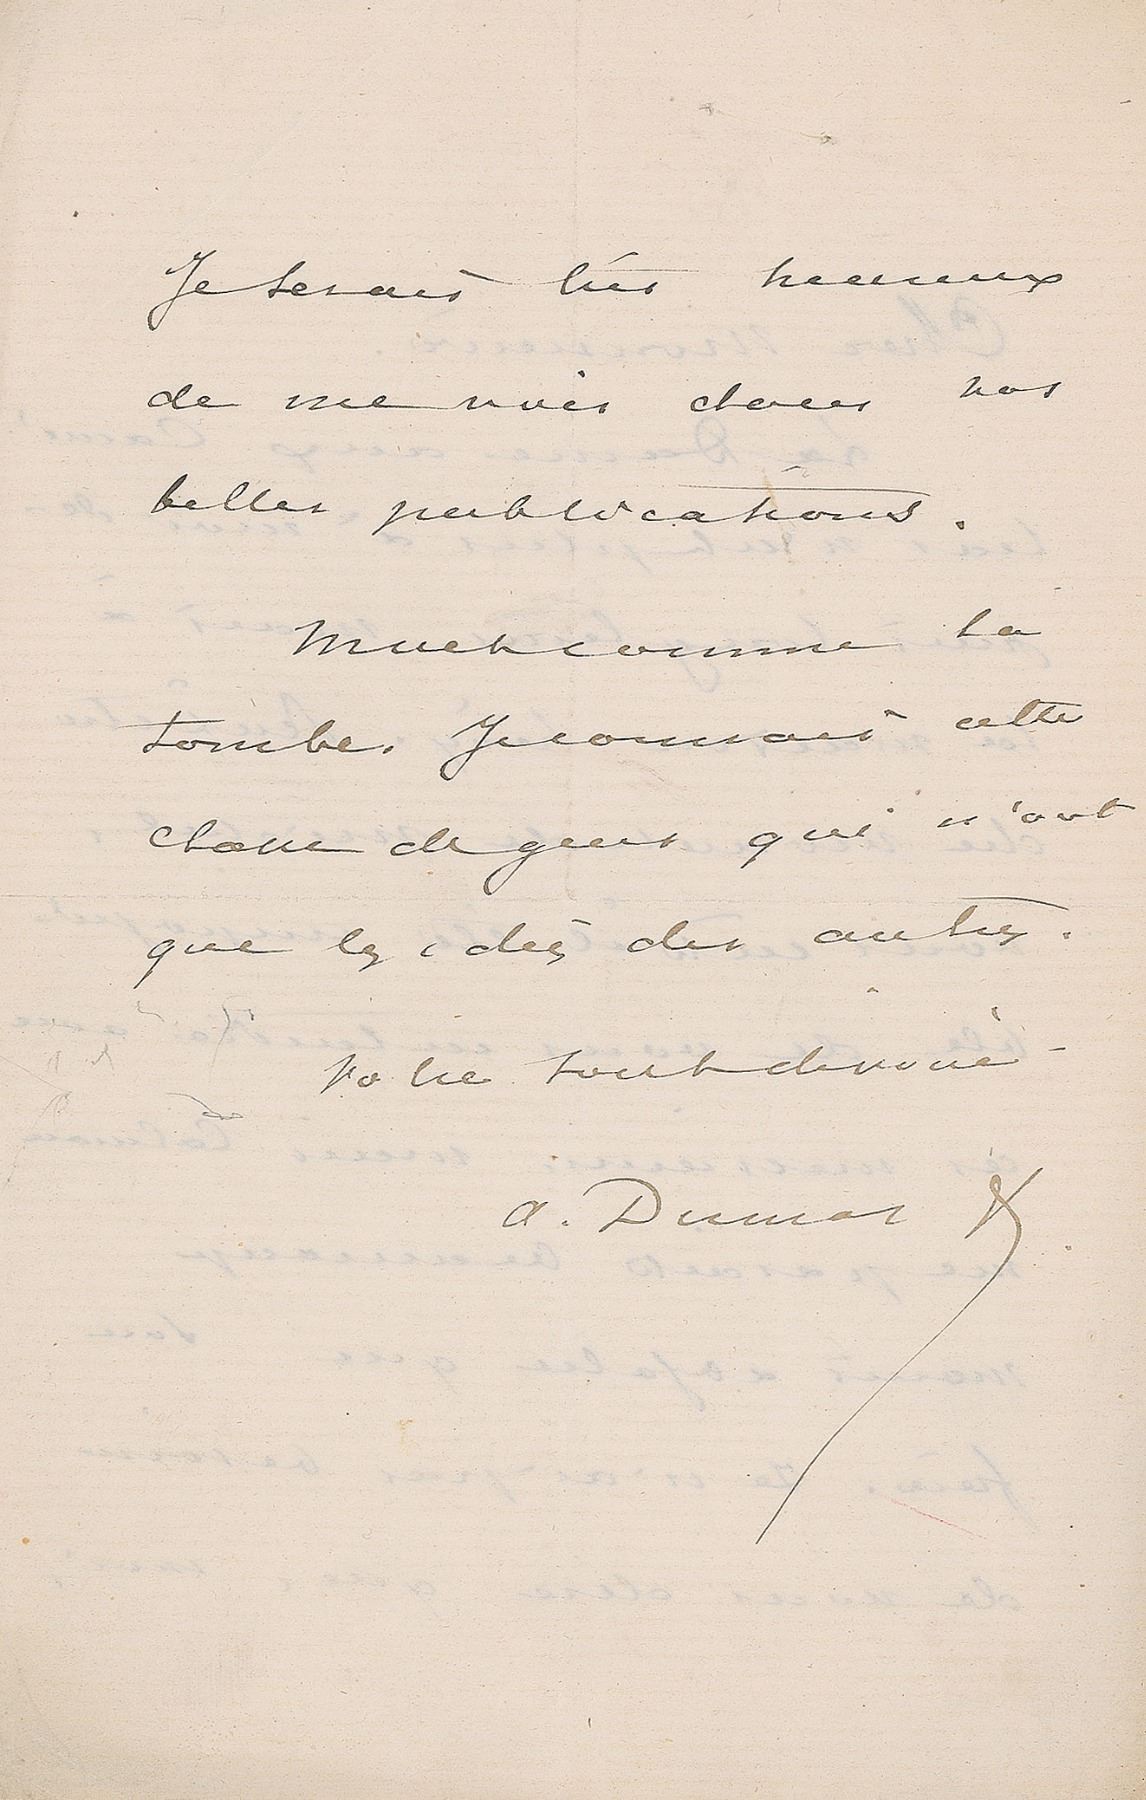 Je serais très heureux
de me voir dans vos
belles publications.
Muet comme la
tombe. Je connais cette
classe de gens qui n'ont
que les idées des autres.
Votre tout dévoué
A. Dumas f